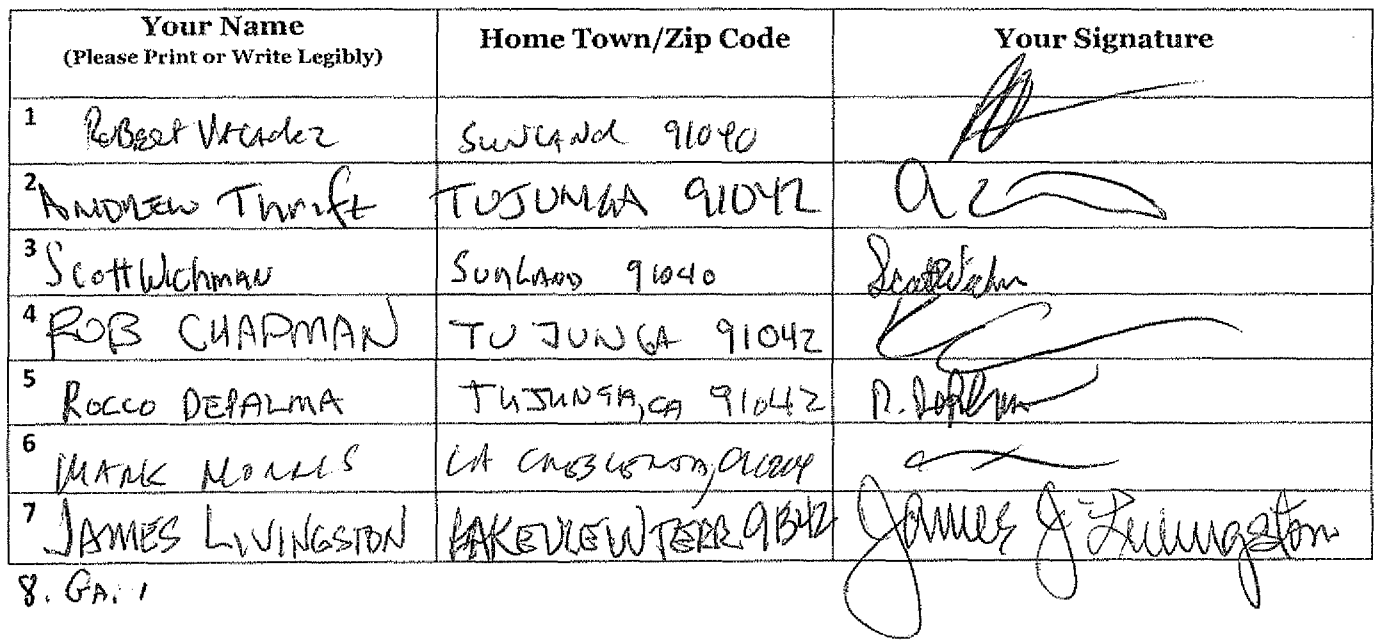 Your Name Home Town/Zip Code Your Signature
(Please Print or Write Legibly)
1 Robert Valadez SUNLAND 91040
2 ANDREW Thrift TUJUNGA 91042
3 Scott Wichman SUNLAND 91040 Scott Wichman
4 ROB CHAPMAN TUJUNGA 91042
5 ROCCO DEPALMA TUJUNGA, CA 91042 R. DePalma
6 MARK MORRIS LA CRESCENTA,
7 JAMES LIVINGSTON LAKEVIEW TERR James J Livingston
8.